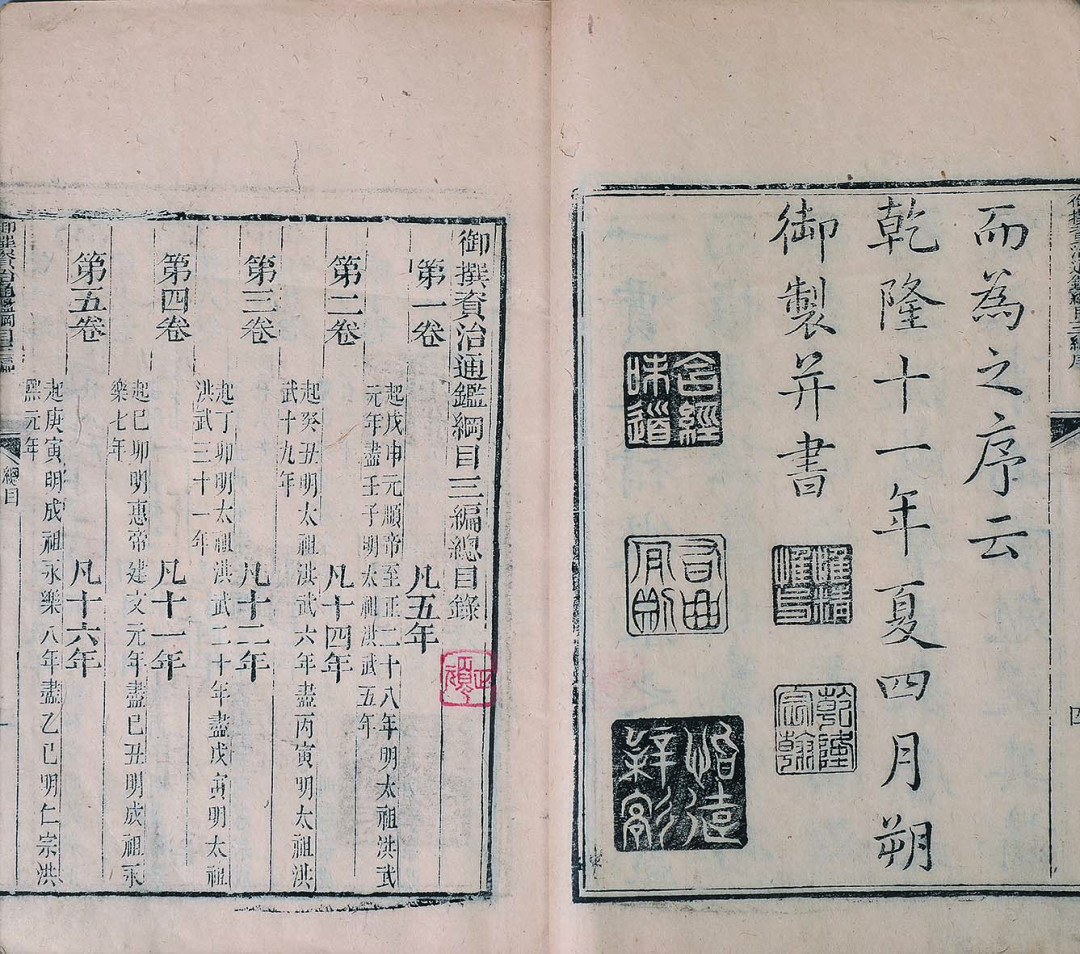 而為之序云
乾隆十一年夏四月朔
御製并書
含經味道
乾隆宸翰
御撰資治通鑑綱目三編總目錄
第一卷 凡五年
起戊申元順帝至正二十八年明太祖洪武
元年盡壬子明太祖洪武五年
第二卷 凡十四年
起癸丑明太祖洪武六年盡丙寅明太祖洪
武十九年
第三卷 凡十二年
起丁卯明太祖洪武二十年盡戊寅明太祖
洪武三十一年
第四卷 凡十一年
起己卯明惠帝建文元年盡己丑明成祖永
樂七年
第五卷 凡十六年
起庚寅明成祖永樂八年盡乙巳明仁宗洪
熙元年
御撰資治通鑑綱目三編 總目